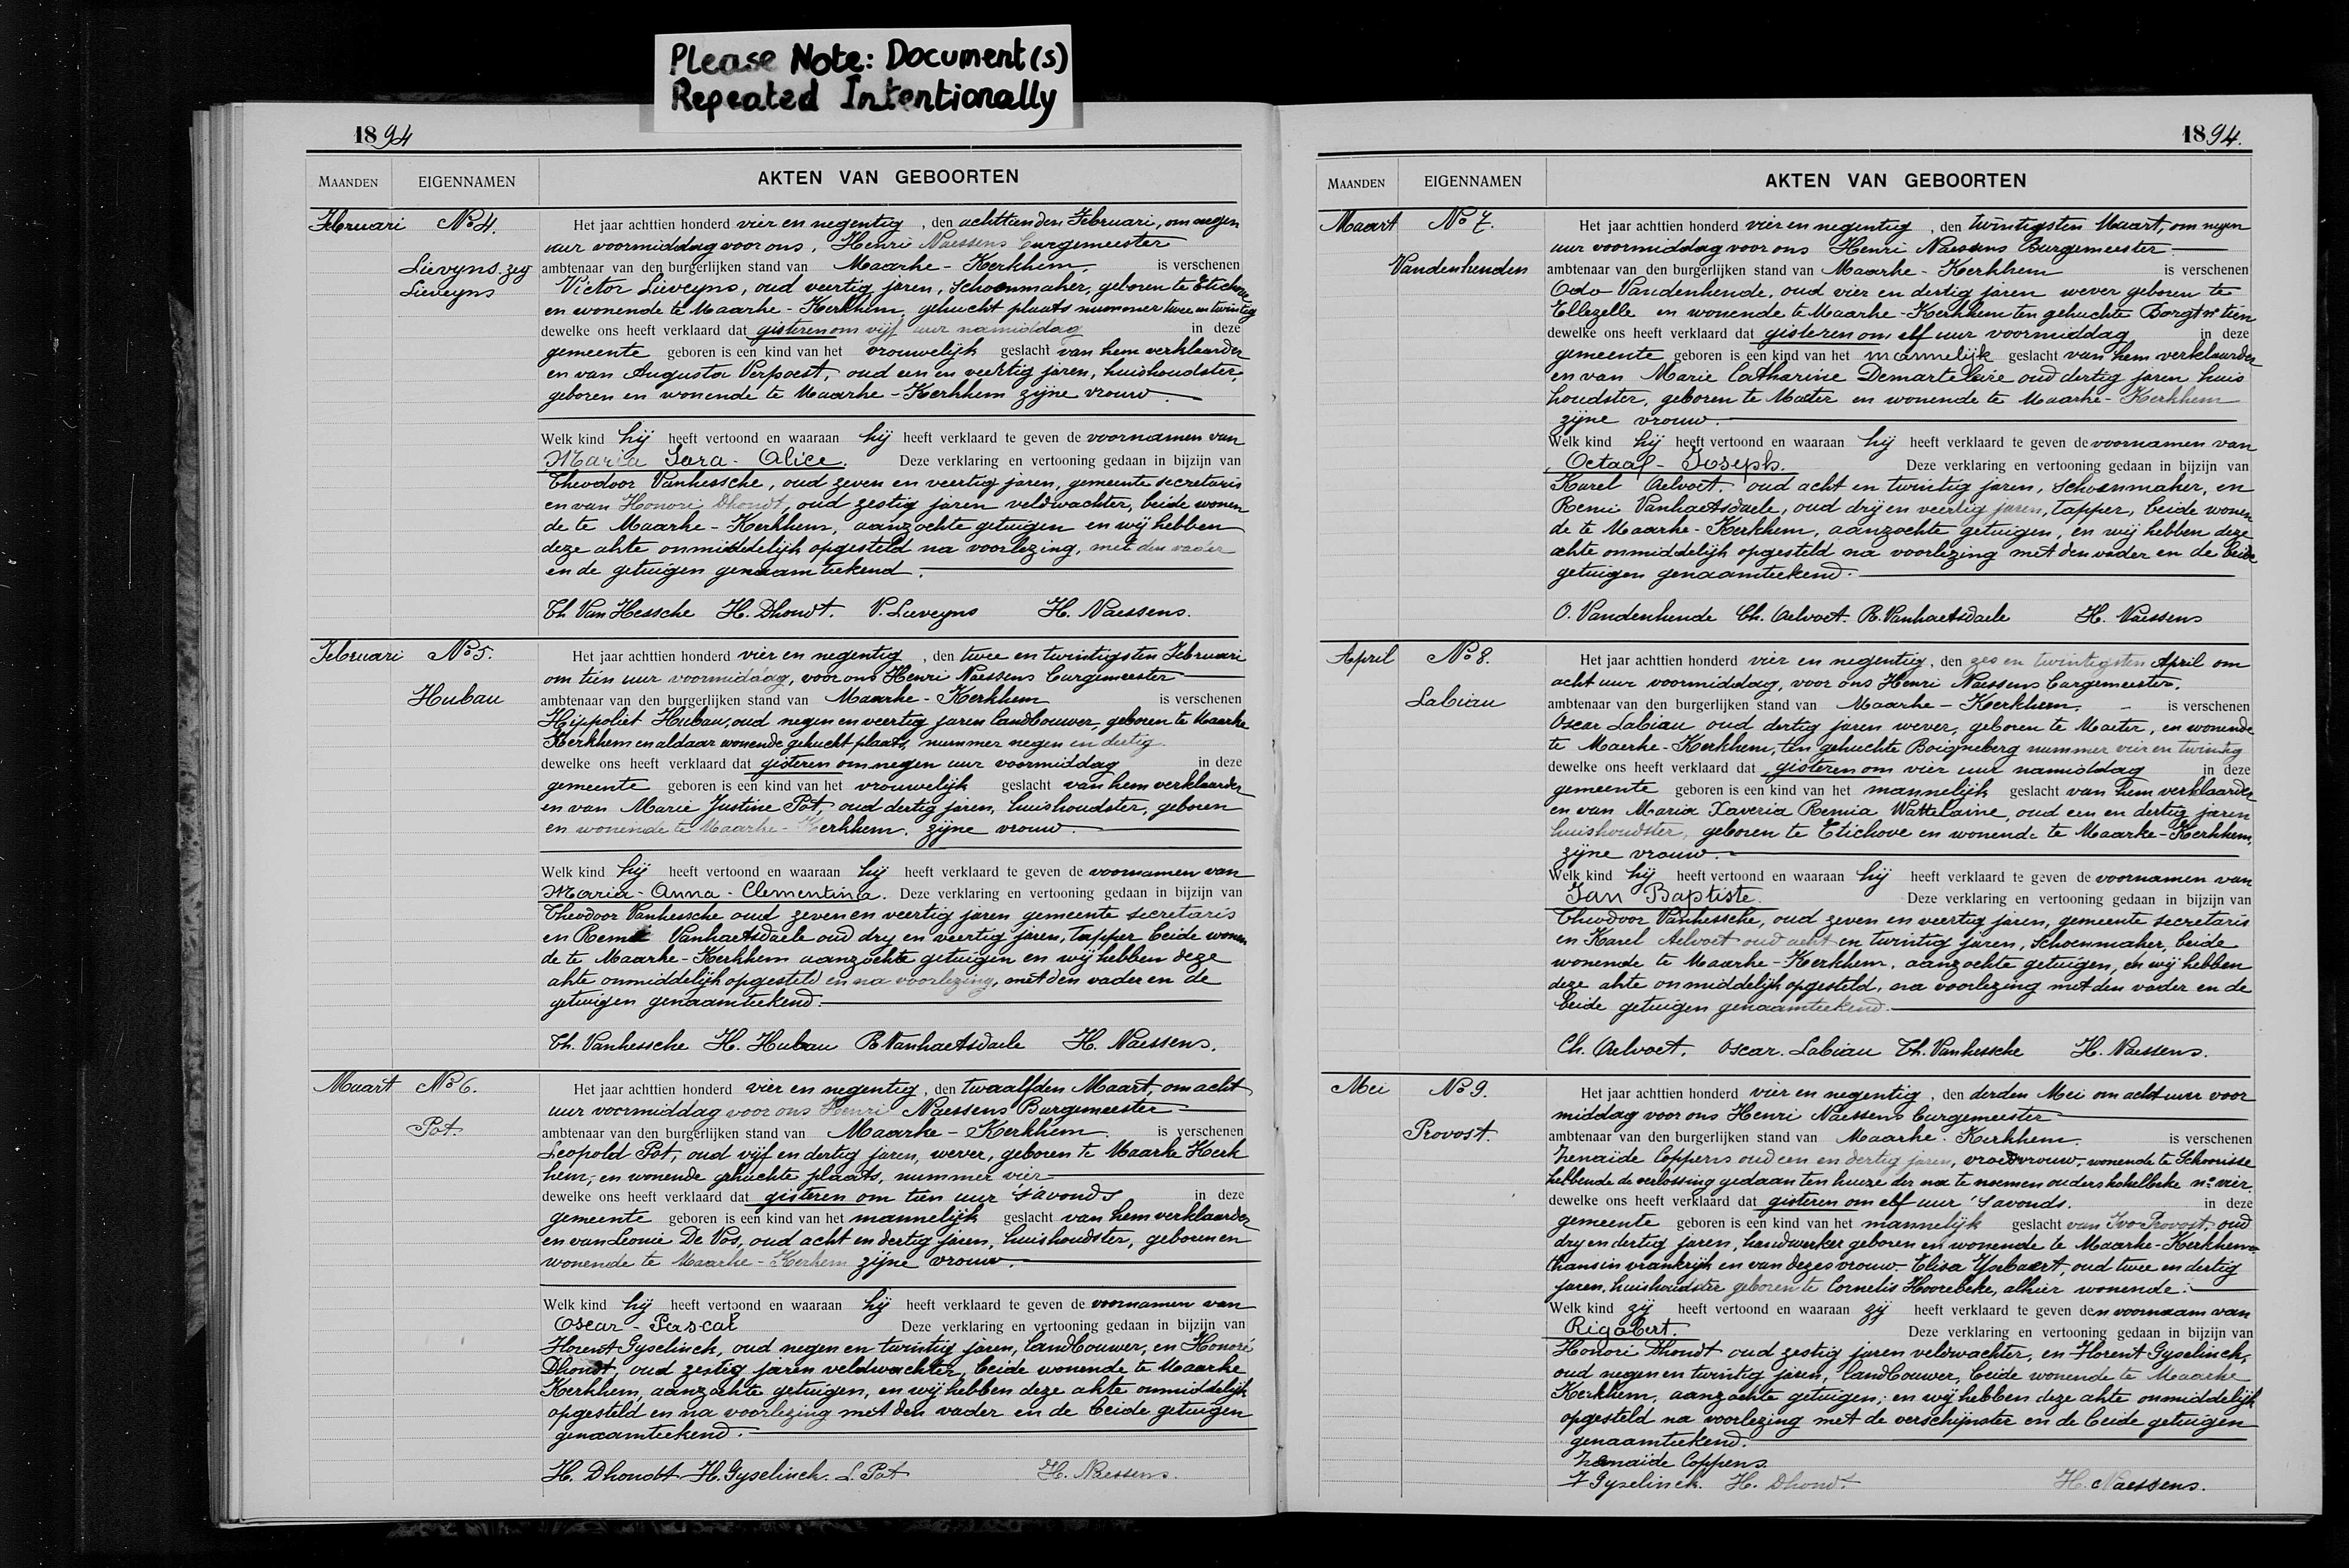 Please Note: Document(s)
Repeated Intentionally
1894
MAANDEN EIGENNAMEN AKTEN VAN GEBOORTEN
Februari No 4.
Lieveyns. zeg
Lieveyns
Het jaar achttien honderd vier en negentig, den achttienden Februari, om negen
uur voormiddag voor ons, Henri Naessens burgemeester
ambtenaar van den burgerlijken stand van Maarke-Kerkhem. is verschenen
Victor Lieveyns, oud veertig jaren, schoenmaker, geboren te Etichove
en wonende te Maarke-Kerkhem, gehucht plaats nummer twee en twintig
dewelke ons heeft verklaard dat gisteren om vijf uur namiddag in deze
gemeente geboren is een kind van het vrouwelijk geslacht van hem verklaarder
en van Augusta Verpoest, oud een en veertig jaren, huishoudster,
geboren en wonende te Maarke-Kerkhem zijne vrouw.
Welk kind hij heeft vertoond en waaraan hij heeft verklaard te geven de voornamen van
Maria Sara-Alice. Deze verklaring en vertooning gedaan in bijzijn van
Theodoor Vanhessche, oud zeven en veertig jaren, gemeente secretaris
en van Honoré Dhondt, oud zestig jaren veldwachter, beide wonen
de te Maarke-Kerkhem, aanzochte getuigen en wij hebben
deze akte onmiddelijk opgesteld na voorlezing, met den vader
en de getuigen genaamteekend.
Th Van Hessche H. Dhondt. V. Lieveyns H. Naessens.
Februari No 5.
Hubau
Het jaar achttien honderd vier en negentig, den twee en twintigsten Februari
om tien uur voormiddag, voor ons Henri Naessens burgemeester
ambtenaar van den burgerlijken stand van Maarke-Kerkhem is verschenen
Hippoliet Hubau, oud negen en veertig jaren landbouwer, geboren te Maarke
Kerkhem en aldaar wonende gehucht plaats, nummer negen en dertig.
dewelke ons heeft verklaard dat gisteren om negen uur voormiddag in deze
gemeente geboren is een kind van het vrouwelijk geslacht van hem verklaarder
en van Marie Justine Pot, oud dertig jaren, huishoudster, geboren
en wonende te Maarke-Kerkhem. zijne vrouw.
Welk kind hij heeft vertoond en waaraan hij heeft verklaard te geven de voornamen van
Maria-Anna-Clementina. Deze verklaring en vertooning gedaan in bijzijn van
Theodoor Vanhessche oud zeven en veertig jaren gemeente secretaris
en Remi Vanhaetsdaele oud dry en veertig jaren, tapper beide wonen
de te Maarke-Kerkhem aanzochte getuigen en wij hebben deze
akte onmiddelijk opgesteld en na voorlezing, met den vader en de
getuigen genaamteekend.
Th. Vanhessche H. Hubau R Vanhaetsdaele H. Naessens.
Maart No 6.
Pot.
Het jaar achttien honderd vier en negentig, den twaalfden Maart, om acht
uur voormiddag voor ons Henri Naessens Burgemeester
ambtenaar van den burgerlijken stand van Maarke-Kerkhem. is verschenen
Leopold Pot, oud vijf en dertig jaren, wever, geboren te Maarke Kerk
hem, en wonende gehuchte plaats, nummer vier
dewelke ons heeft verklaard dat gisteren om tien uur 's avonds in deze
gemeente geboren is een kind van het mannelijk geslacht van hem verklaarder
en van Leonie De Vos, oud acht en dertig jaren, huishoudster, geboren en
wonende te Maarke-Kerhem zijne vrouw.
Welk kind hij heeft vertoond en waaraan hij heeft verklaard te geven de voornamen van
Oscar-Perscal Deze verklaring en vertooning gedaan in bijzijn van
Florent Gyselinck, oud negen en twintig jaren, landbouwer, en Honoré
Dhondt, oud zestig jaren veldwachter, beide wonende te Maarke
Kerkhem, aanzochte getuigen, en wij hebben deze akte onmiddelijk
opgesteld en na voorlezing met den vader en de beide getuigen
genaamteekend.
H. Dhondt H. Gyselinck. L. Pot H. Naessens.
1894.
MAANDEN EIGENNAMEN AKTEN VAN GEBOORTEN
Maart No 7.
Vandenhenden
Het jaar achttien honderd vier en negentig, den twintigsten Maart, om negen
uur voormiddag voor ons Henri Naessens Burgemeester
ambtenaar van den burgerlijken stand van Maarke-Kerkhem is verschenen
Odo Vandenhende, oud vier en dertig jaren wever geboren te
Ellezelle en wonende te Maarke-Kerkhem ten gehuchte Borgt nr tien
dewelke ons heeft verklaard dat gisteren om elf uur voormiddag in deze
gemeente geboren is een kind van het mannelijk geslacht van hem verklaarder
en van Marie Catharine Demarteleire oud dertig jaren huis
houdster, geboren te Mater en wonende te Maarke-Kerkhem
zijne vrouw.
Welk kind hij heeft vertoond en waaraan hij heeft verklaard te geven de voornamen van
Octaaf-Joseph. Deze verklaring en vertooning gedaan in bijzijn van
Karel Aelvoet. oud acht en twintig jaren, schoenmaker, en
Remi Vanhaetsdaele, oud drij en veertig jaren, tapper, beide wonen
de te Maarke-Kerkhem, aanzochte getuigen, en wij hebben deze
akte onmiddelijk opgesteld na voorlezing met den vader en de beide
getuigen genaamteekend.
O. Vandenhende Ch. Aelvoet. R. Vanhaetsdaele H. Naessens
April No 8.
Labiau
Het jaar achttien honderd vier en negentig, den zes en twintigsten April om
acht uur voormiddag, voor ons Henri Naessens burgemeester.
ambtenaar van den burgerlijken stand van Maarke-Kerkhem. is verschenen
Oscar Labiau oud dertig jaren wever, geboren te Maeter, en wonende
te Maerke-Kerkhem, ten gehuchte Boigneberg nummer vier en twintig
dewelke ons heeft verklaard dat gisteren om vier uur namiddag in deze
gemeente geboren is een kind van het mannelijk geslacht van hem verklaarder
en van Maria Xaveria Remia Wattelaine, oud een en dertig jaren
huishoudster, geboren te Etichove en wonende te Maarke-Kerkhem,
zijne vrouw.
Welk kind hij heeft vertoond en waaraan hij heeft verklaard te geven de voornamen van
Jan Baptiste. Deze verklaring en vertooning gedaan in bijzijn van
Theodoor Vanhessche, oud zeven en veertig jaren, gemeente secretaris
en Karel Aelvoet oud acht en twintig jaren, schoenmaker, beide
wonende te Maarke-Kerkhem, aanzochte getuigen, en wij hebben
deze akte onmiddelijk opgesteld, na voorlezing met den vader en de
beide getuigen genaamteekend.
Ch. Aelvoet. Oscar. Labiau Th. Vanhessche H. Naessens.
Mei No 9.
Provost.
Het jaar achttien honderd vier en negentig, den derden Mei om acht uur voor
middag voor ons Henri Naessens burgemeester
ambtenaar van den burgerlijken stand van Maarke-Kerkhem. is verschenen
Zenaïde Coppens oud een en dertig jaren, vroedvrouw, wonende te Schoorisse
hebbende de verlossing gedaan ten huize der na te noemen ouders kokelbeke no vier.
dewelke ons heeft verklaard dat gisteren om elf uur 's avonds. in deze
gemeente geboren is een kind van het mannelijk geslacht van Ivo Provost, oud
dry en dertig jaren, handwerker geboren en wonende te Maarke-Kerkhem
thans in vrankrijk en van dezes vrouw. Elisa Ysebaert, oud twee en dertig
jaren, huishoudster geboren te Cornelis Hoorebeke, alhier wonende.
Welk kind zij heeft vertoond en waaraan zij heeft verklaard te geven den voornaam van
Rigobert. Deze verklaring en vertooning gedaan in bijzijn van
Honoré Dhondt oud zestig jaren veldwachter, en Florent Gyselinck,
oud negen en twintig jaren, landbouwer, beide wonende te Maarke
Kerkhem, aanzochte getuigen, en wij hebben deze akte onmiddelijk
opgesteld na voorlezing met de verschijnster en de beide getuigen
genaamteekend.
Zenaïde Coppens
F Gyselinck. H. Dhondt H. Naessens.